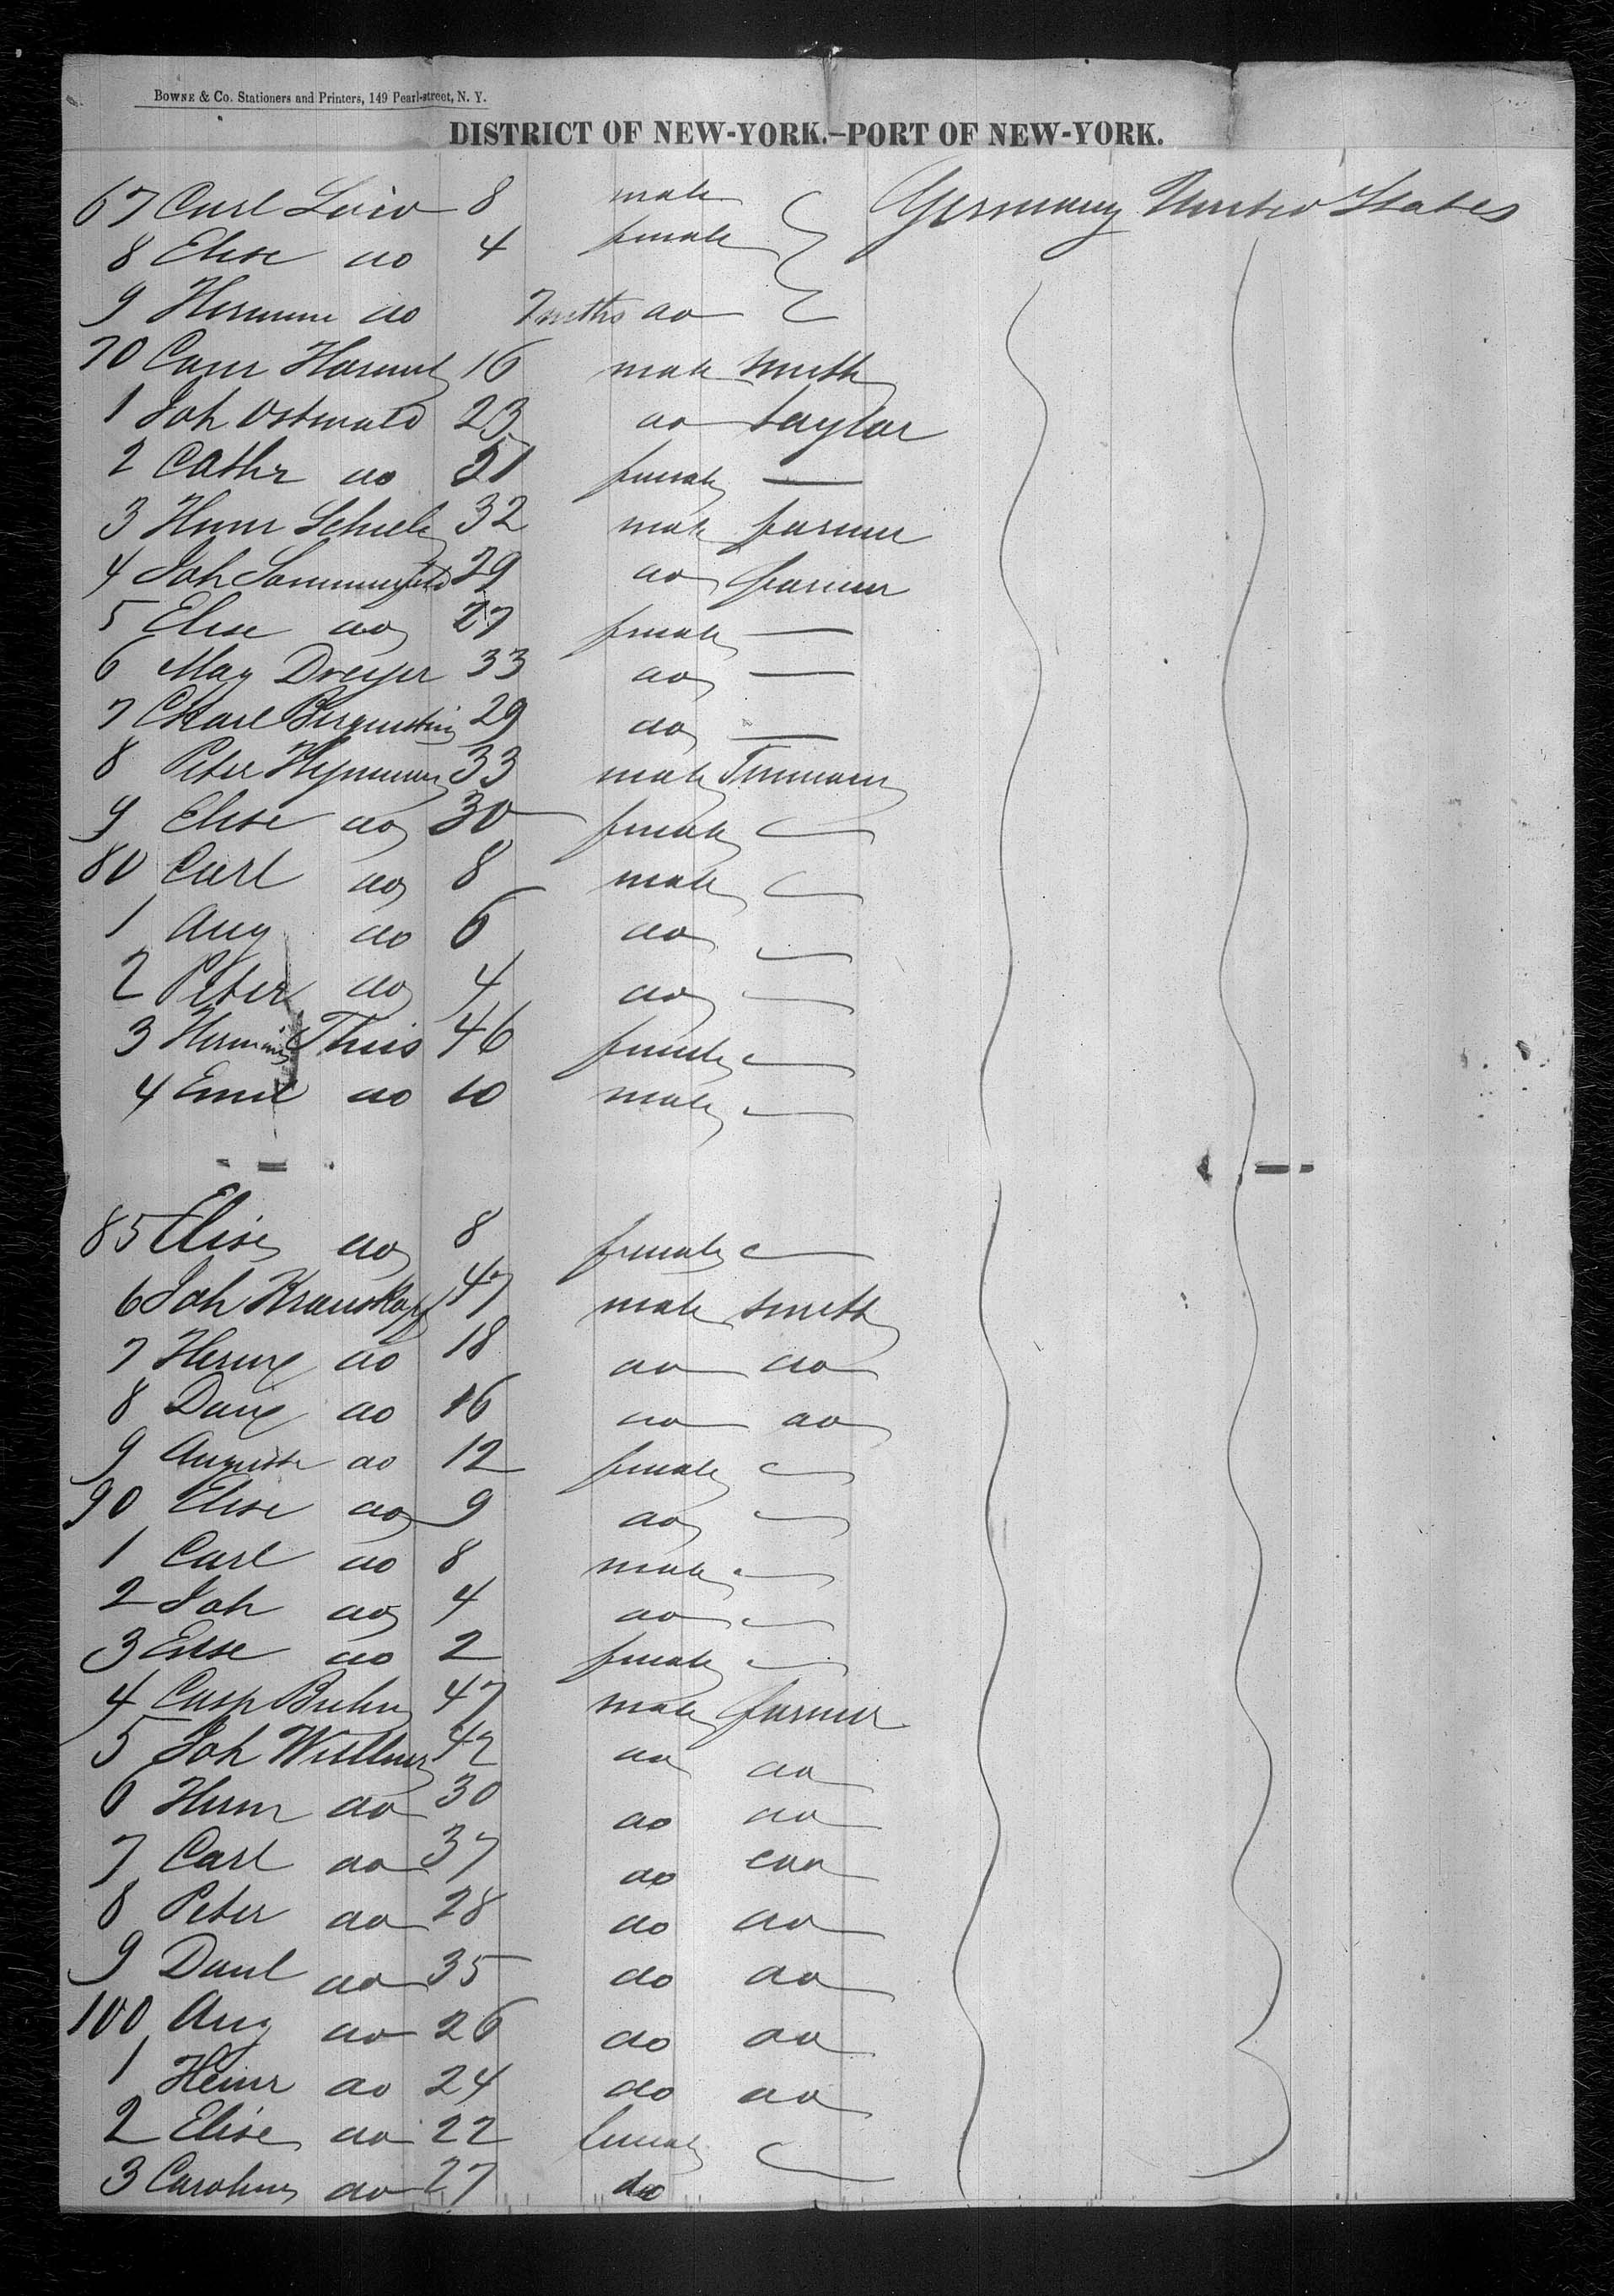 BOWNE & Co. Stationers and Printers, 149 Pearl-street, N. Y.
DISTRICT OF NEW-YORK.–PORT OF NEW-YORK.
67 Carl 8 male Germany United States
8 Elise do 4 female
9 do 7 mths do
70 16 male smith
1 Joh Ostwald 23 do taylor
2 Cathr do 51 female —
3 Herm 32 male farmer
4 Joh Sommerfeld 29 do farmer
5 Elise do 27 female —
6 Mag Dreyer 33 do —
7 29 do —
8 Peter 33 male
9 Elise do 30 female —
80 Carl do 8 male —
1 Aug do 6 do —
2 Peter do 4 do —
3 Thies 46 female —
4 Emil do 10 male —
85 Elise do 8 female —
6 Joh Krauskopf 47 male smith
7 do 18 do do
8 do 16 do do
9 Auguste do 12 female —
90 Elise do 9 do —
1 Carl do 8 male —
2 Joh do 4 do —
3 do 2 female —
4 Casp 47 male farmer
5 Joh 42 do do
6 Herm do 30 do do
7 Carl do 37 do do
8 Peter do 28 do do
9 Danl do 35 do do
100 Aug do 26 do do
1 Heinr do 24 do do
2 Elise do 22 female —
3 Caroline do 27 do